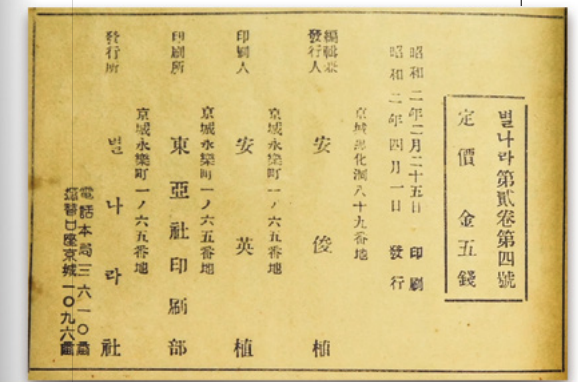 별나라第貳卷第四號
定價 金五錢
昭和二年三月二十五日 印刷
昭和二年四月一日 發行
京城 化洞八十九番地
編輯兼
發行人 安俊植
京城永樂町一ノ六五番地
印刷人 安英植
京城永樂町一ノ六五番地
印刷所 東亞社印刷部
京城永樂町一ノ六五番地
發行所 별나라社
電話本局三六一〇番
振替口座京城一〇九六番